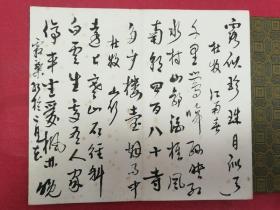 露似珍珠月似弓
杜牧 江南春
千里鶯啼綠映紅
水村山郭酒旗風
南朝四百八十寺
多少樓臺烟雨中
杜牧 山行
遠上寒山石徑斜
白雲生處有人家
停車坐愛楓林晚